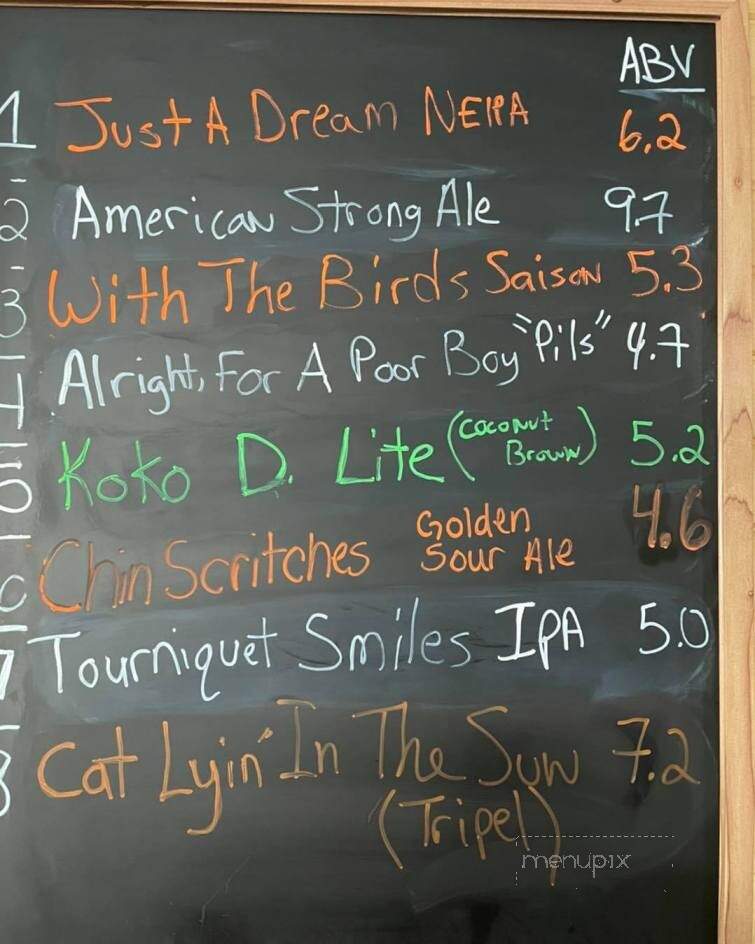 ABV
1 Just A Dream NEIPA 6.2
2 American Strong Ale 9.7
3 With The Birds Saison 5.3
4 Alright, For A Poor Boy "Pils" 4.7
5 Koko D. Lite (Coconut Brown) 5.2
6 Chin Scritches Golden Sour Ale 4.6
7 Tourniquet Smiles IPA 5.0
8 Cat Lyin' In The Sun 7.2
(Tripel)
menupix